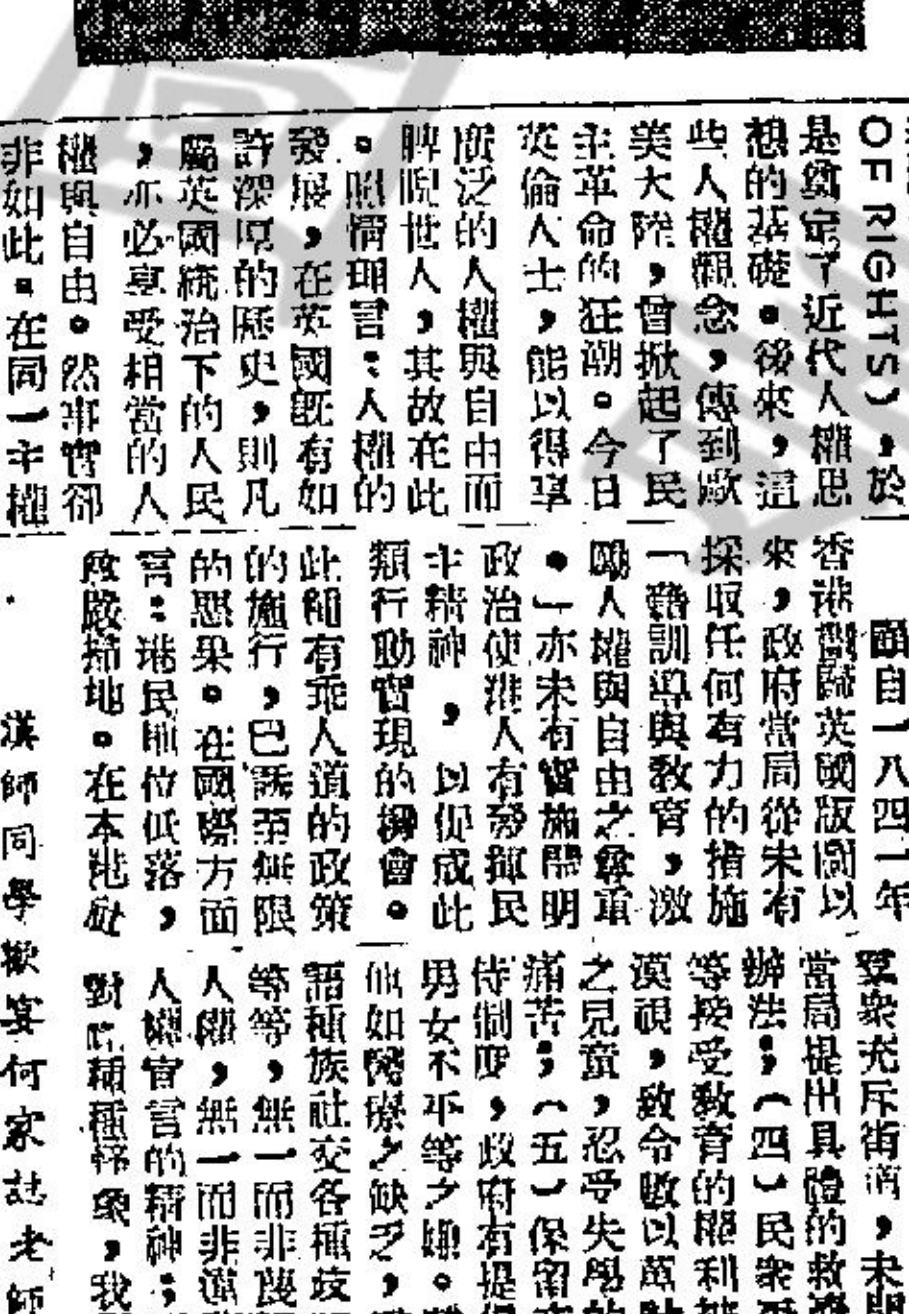 OF RIGHTS），於
是奠定了近代人權思
想的基礎。後來，這
些人權觀念，傳到歐
美大陸，曾掀起了民
主革命的狂潮。今日
英倫人士，能以得享
廣泛的人權與自由而
脾睨世人，其故在此
。照情理言：人權的
發展，在英國既有如
許深厚的歷史，則凡
屬英國統治下的人民
，亦必享受相當的人
權與自由。然事實卻
非如此。在同一主權
顧自一八四一年
香港劃歸英國版圖以
來，政府當局從未有
採取任何有力的措施
「藉訓導與教育，激
勵人權與自由之尊重
。」亦未有實施開明
政治使港人有發揮民
主精神，以促成此
類行動實現的機會。
此種有乖人道的政策
的施行，已誘至無限
的惡果。在國際方面
言：港民地位低落，
尊嚴掃地。在本港社
羣衆充斥街道，未聞
當局提出具體的救濟
辦法；（四）民衆
等接受敎育的權利被
漠視，致令數以萬計
之兒童，忍受失學的
痛苦；（五）保留
侍制度，政府有提倡
男女不平等之嫌。
他如醫療之缺乏，
語種族社交各種歧
等等，無一而非
人權，無一而非違
人權宣言的精神；
對此種種情象，我
漢師同學歡宴何家誌老師